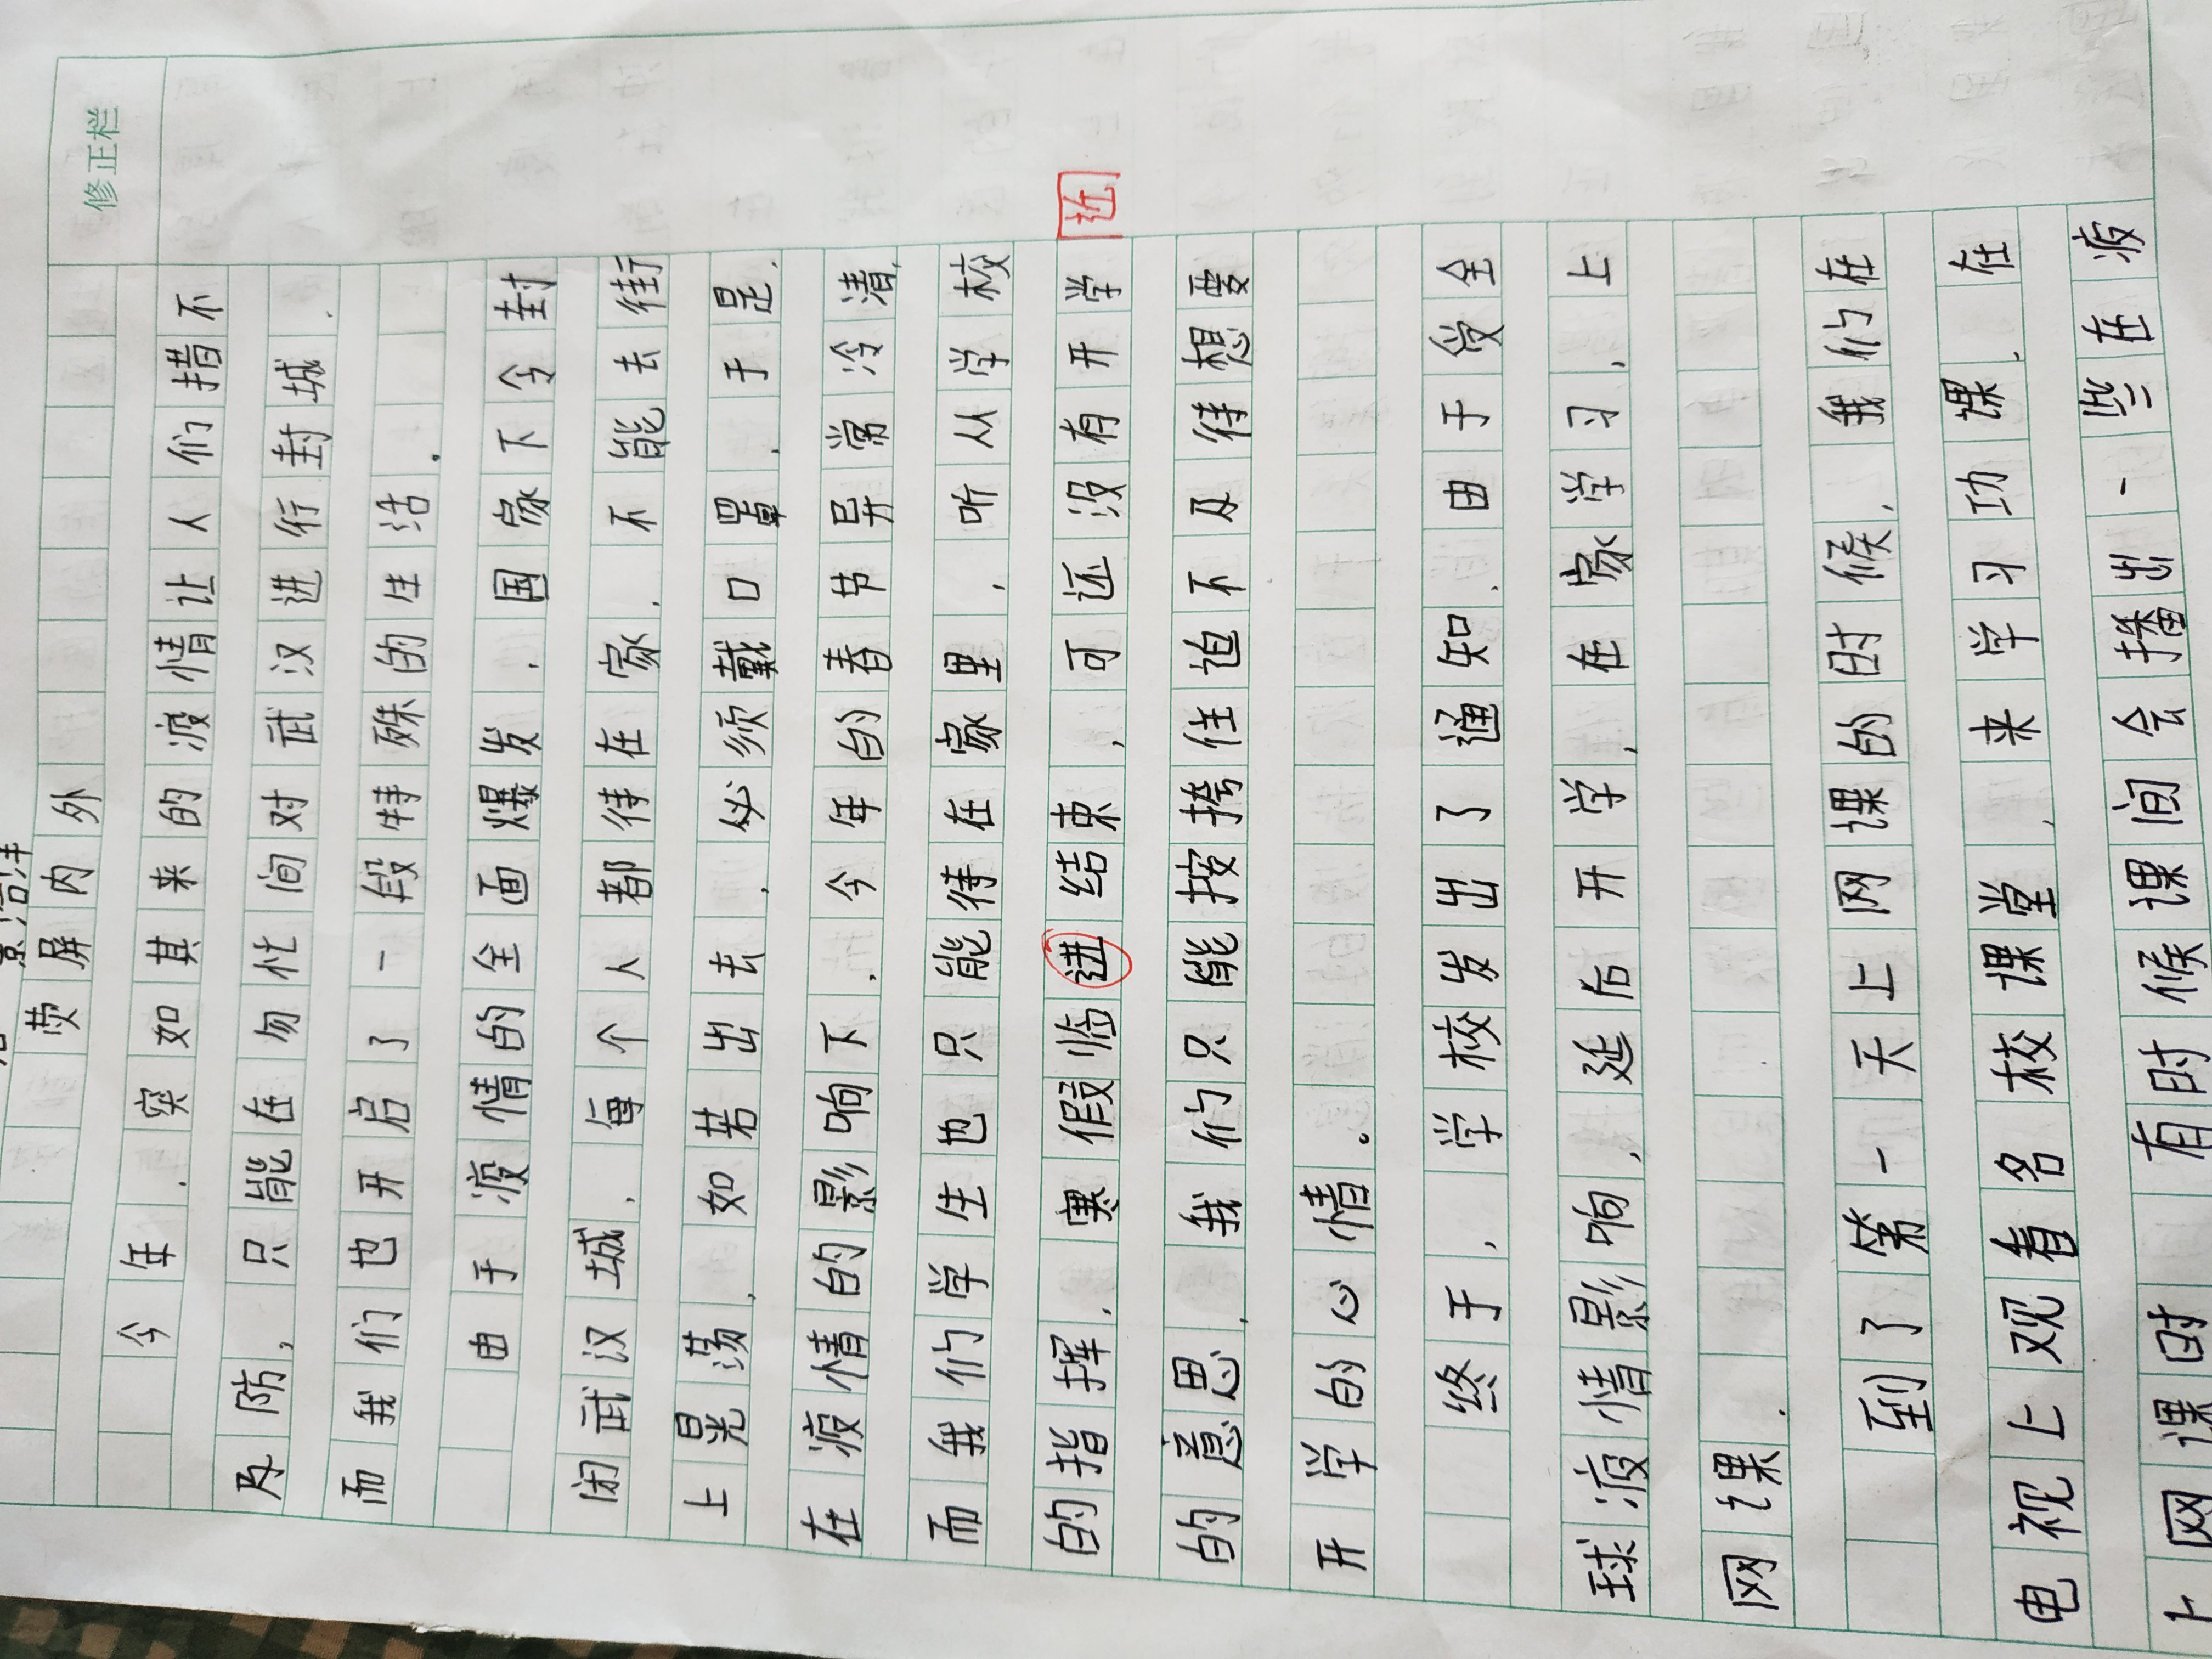 修正栏
荧屏内外
今年，突如其来的疫情让人们措不
及防，只能在匆忙间对武汉进行封城，
而我们也开启了一段特殊的生活。
由于疫情的全面爆发，国家下令封
闭武汉城，每个人都待在家，不能去街
上晃荡，如若出去，必须戴口罩，于是，
在疫情的影响下，今年的春节异常冷清，
而我们学生也只能待在家里，听从学校
的指挥，寒假临进结束，可还没有开学
近
的意思，我们只能按捺住迫不及待想要
开学的心情。
终于，学校发出了通知，由于受全
球疫情影响，延后开学，在家学习，上
网课，
到了第一天上网课的时候，我们在
电视上观看名校课堂，来学习功课，在
上网课时 有时候课间会播出一些在疫